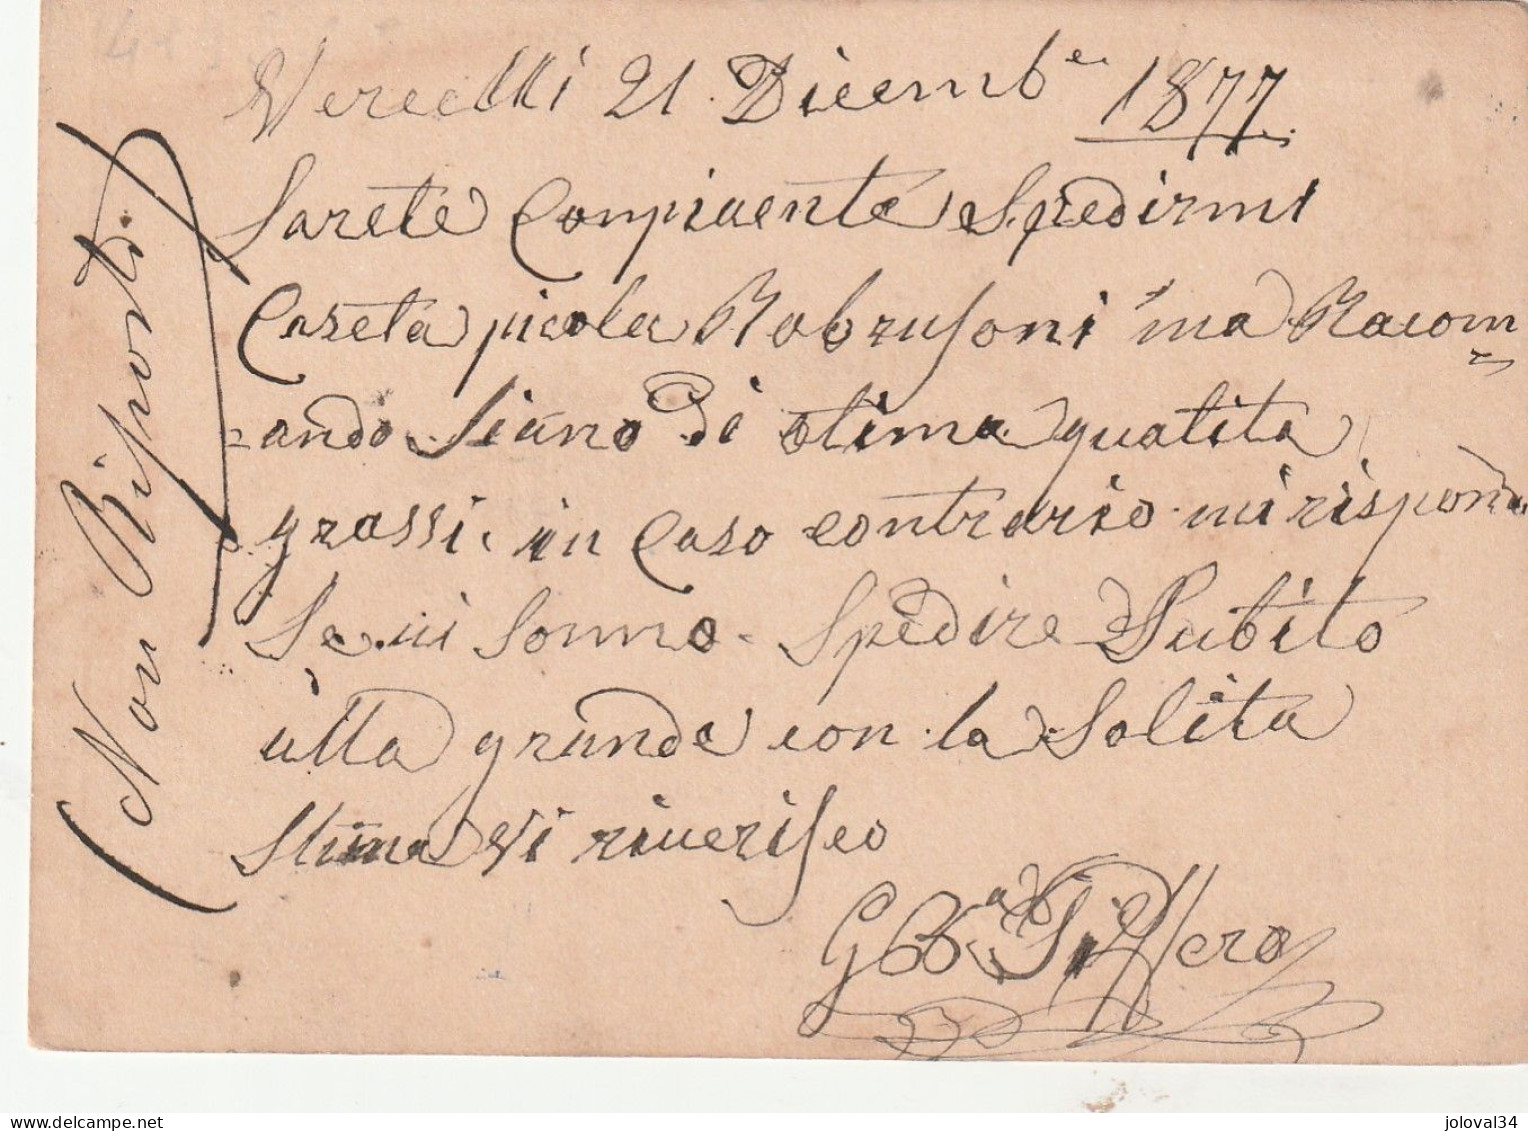 Vercelli 21 Dicemb.e 1877
Sarete Conpiacente Spedirmi
Caseta picola Rabrusoni ma Racom
=ando Siano di otima qualita
grassi. in Caso contrario mi risponda
Se mi sonno - Spedire Subito
alla grande con la Solita
Stima Vi riverisco
GBBa
(Non Risposto.)
joloval34